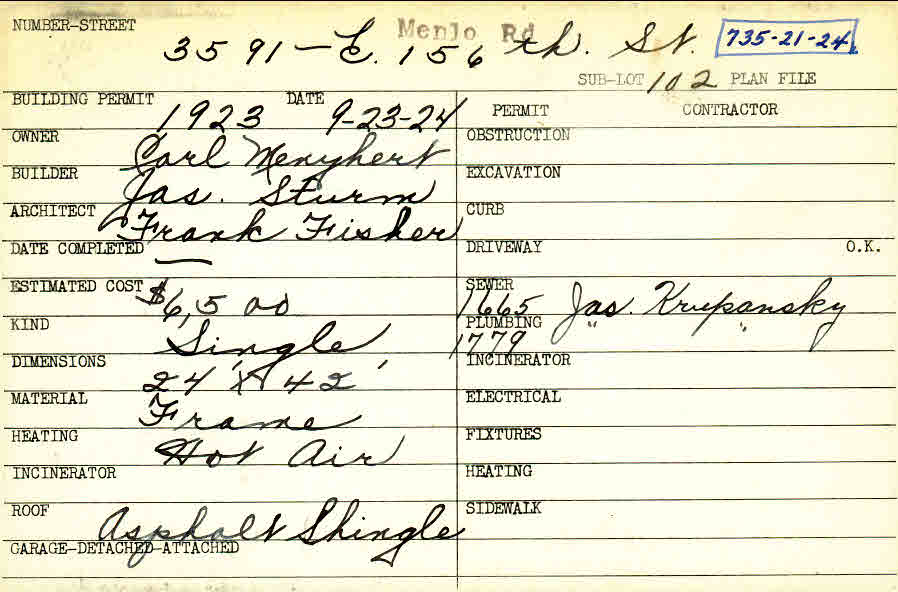 NUMBER-STREET 3591 - E. 156 th. St. Menlo Rd 735-21-24
SUB-LOT 102 PLAN FILE
BUILDING PERMIT 1923 DATE 9-23-24
OWNER Carl Menyhert
BUILDER Jas. Sturm
ARCHITECT Frank Fisher
DATE COMPLETED —
ESTIMATED COST $6,500
KIND Single
DIMENSIONS 24' x 42'
MATERIAL Frame
HEATING Hot Air
INCINERATOR
ROOF Asphalt Shingle
GARAGE-DETACHED-ATTACHED
PERMIT CONTRACTOR
OBSTRUCTION
EXCAVATION
CURB
DRIVEWAY O.K.
SEWER 1665 Jas. Krupansky
PLUMBING 1779 " "
INCINERATOR
ELECTRICAL
FIXTURES
HEATING
SIDEWALK